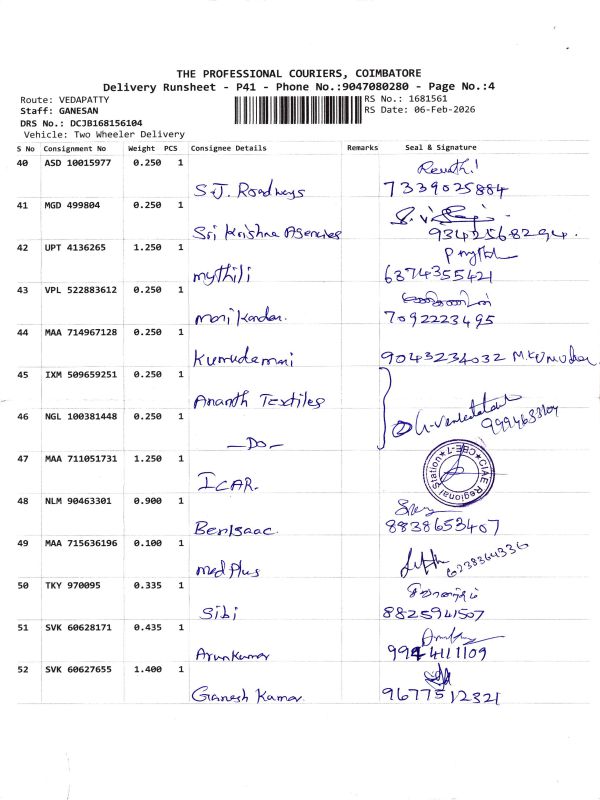 THE PROFESSIONAL COURIERS, COIMBATORE
Delivery Runsheet - P41 - Phone No.:9047080280 - Page No.:4
Route: VEDAPATTY
RS No.: 1681561
Staff: GANESAN
RS Date: 06-Feb-2026
DRS No.: DCJB168156104
Vehicle: Two Wheeler Delivery
S No Consignment No Weight PCS Consignee Details Remarks Seal & Signature
40 ASD 10015977 0.250 1
S.J. Roadways 7339025884
41 MGD 499804 0.250 1
Sri Krishna Agencies 9342568294.
42 UPT 4136265 1.250 1
mythili 6374355421
43 VPL 522883612 0.250 1
mani kandan. 7092223495
44 MAA 714967128 0.250 1
Kumudemani 9043234032
45 IXM 509659251 0.250 1
Ananth Textiles
46 NGL 100381448 0.250 1
—Do—
47 MAA 711051731 1.250 1
ICAR.
CIAE Regional Station CBE-7
48 NLM 90463301 0.900 1
Benisaac. 8838653407
49 MAA 715636196 0.100 1
Med plus 6238364336
50 TKY 970095 0.335 1
Sibi 8825941507
51 SVK 60628171 0.435 1
Arunkumar 9944111109
52 SVK 60627655 1.400 1
Ganesh Kumar 9677512321